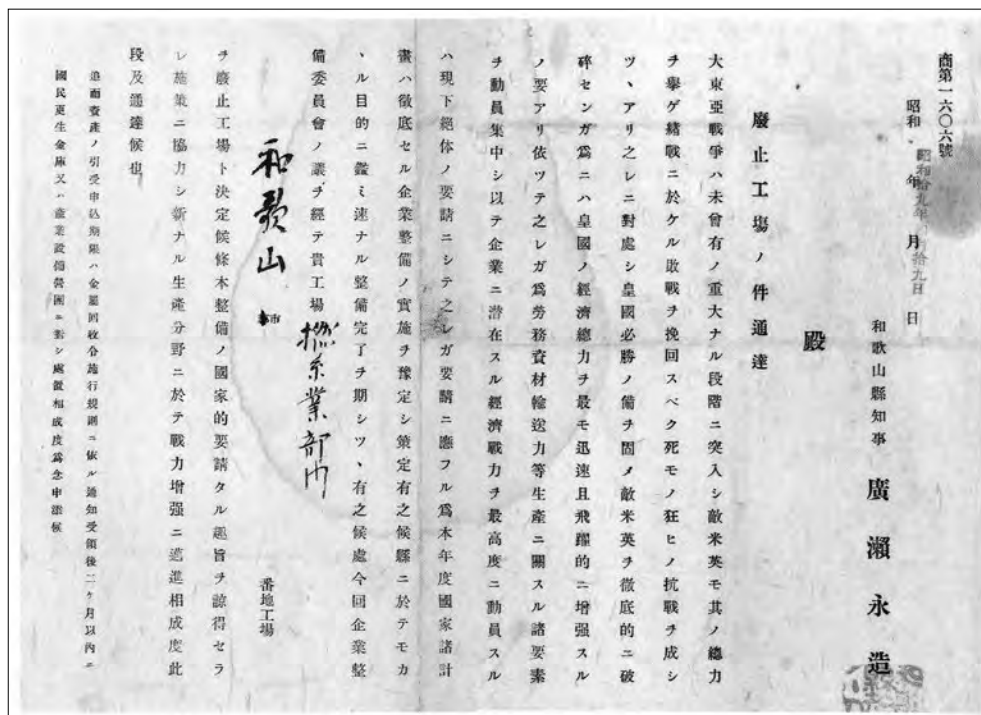 商第一六〇六號
昭和 年 月 日
昭和拾九年 月拾九日
和歌山縣知事 廣瀨永造
殿
廢止工場ノ件通達
大東亞戰爭ハ未曾有ノ重大ナル段階ニ突入シ敵米英モ其ノ總力
ヲ擧ゲ緒戰ニ於ケル敗戰ヲ挽回スベク死モノ狂ヒノ抗戰ヲ成シ
ツヽアリ之レニ對處シ皇國必勝ノ備ヲ固メ敵米英ヲ徹底的ニ破
碎センガ爲ニハ皇國ノ經濟總力ヲ最モ迅速且飛躍的ニ增强スル
ノ要アリ依ツテ之レガ爲勞務資材輸送力等生產ニ關スル諸要素
ヲ動員集中シ以テ企業ニ潜在スル經濟戰力ヲ最高度ニ動員スル
ハ現下絕体ノ要請ニシテ之レガ要請ニ應フル爲本年度國家諸計
畫ハ徹底セル企業整備ノ實施ヲ豫定シ策定有之候縣ニ於テモカ
ヽル目的ニ鑑ミ速ナル整備完了ヲ期シツヽ有之候處今回企業整
備委員會ノ議ヲ經テ貴工場 撚糸業部門
和歌山 市 番地工場
ヲ廢止工場ト決定候條本整備ノ國家的要請タル趣旨ヲ諒得セラ
レ施策ニ協力シ新ナル生產分野ニ於テ戰力增强ニ邁進相成度此
段及通達候也
追而資產ノ引受申込期限ハ金屬回收令施行規則ニ依ル通知受領後二ケ月以內ニ
國民更生金庫又ハ產業設備營團ニ對シ處置相成度爲念申添候